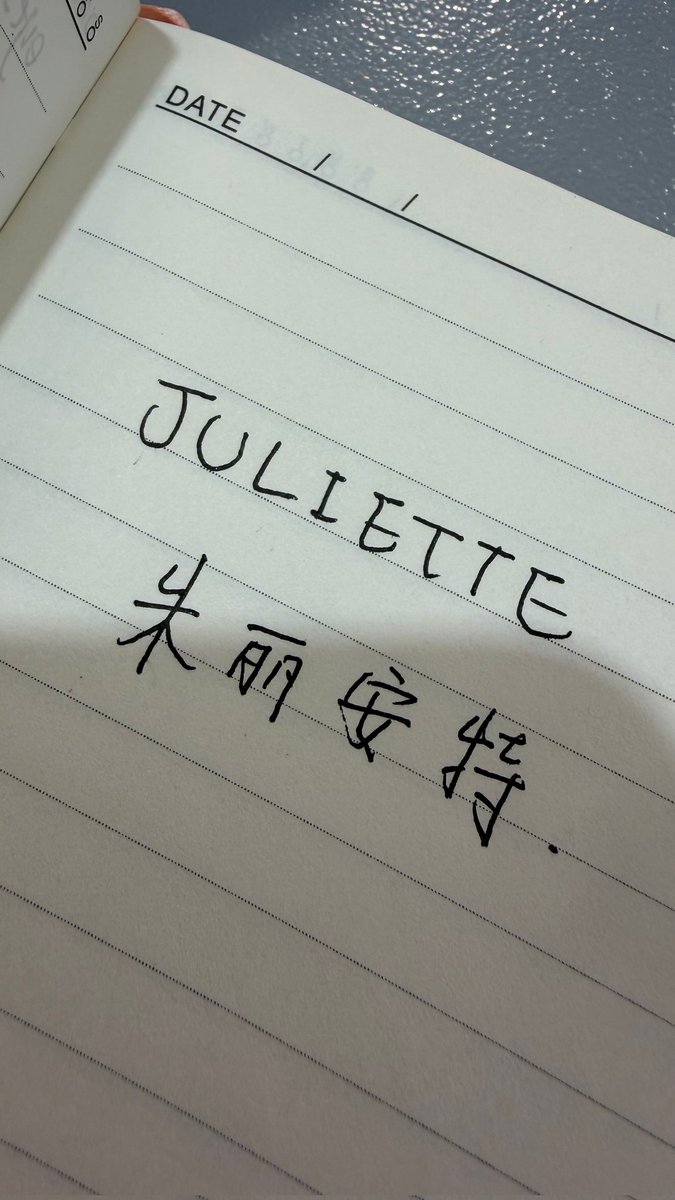 DATE / /
JULIETTE
朱丽安特.